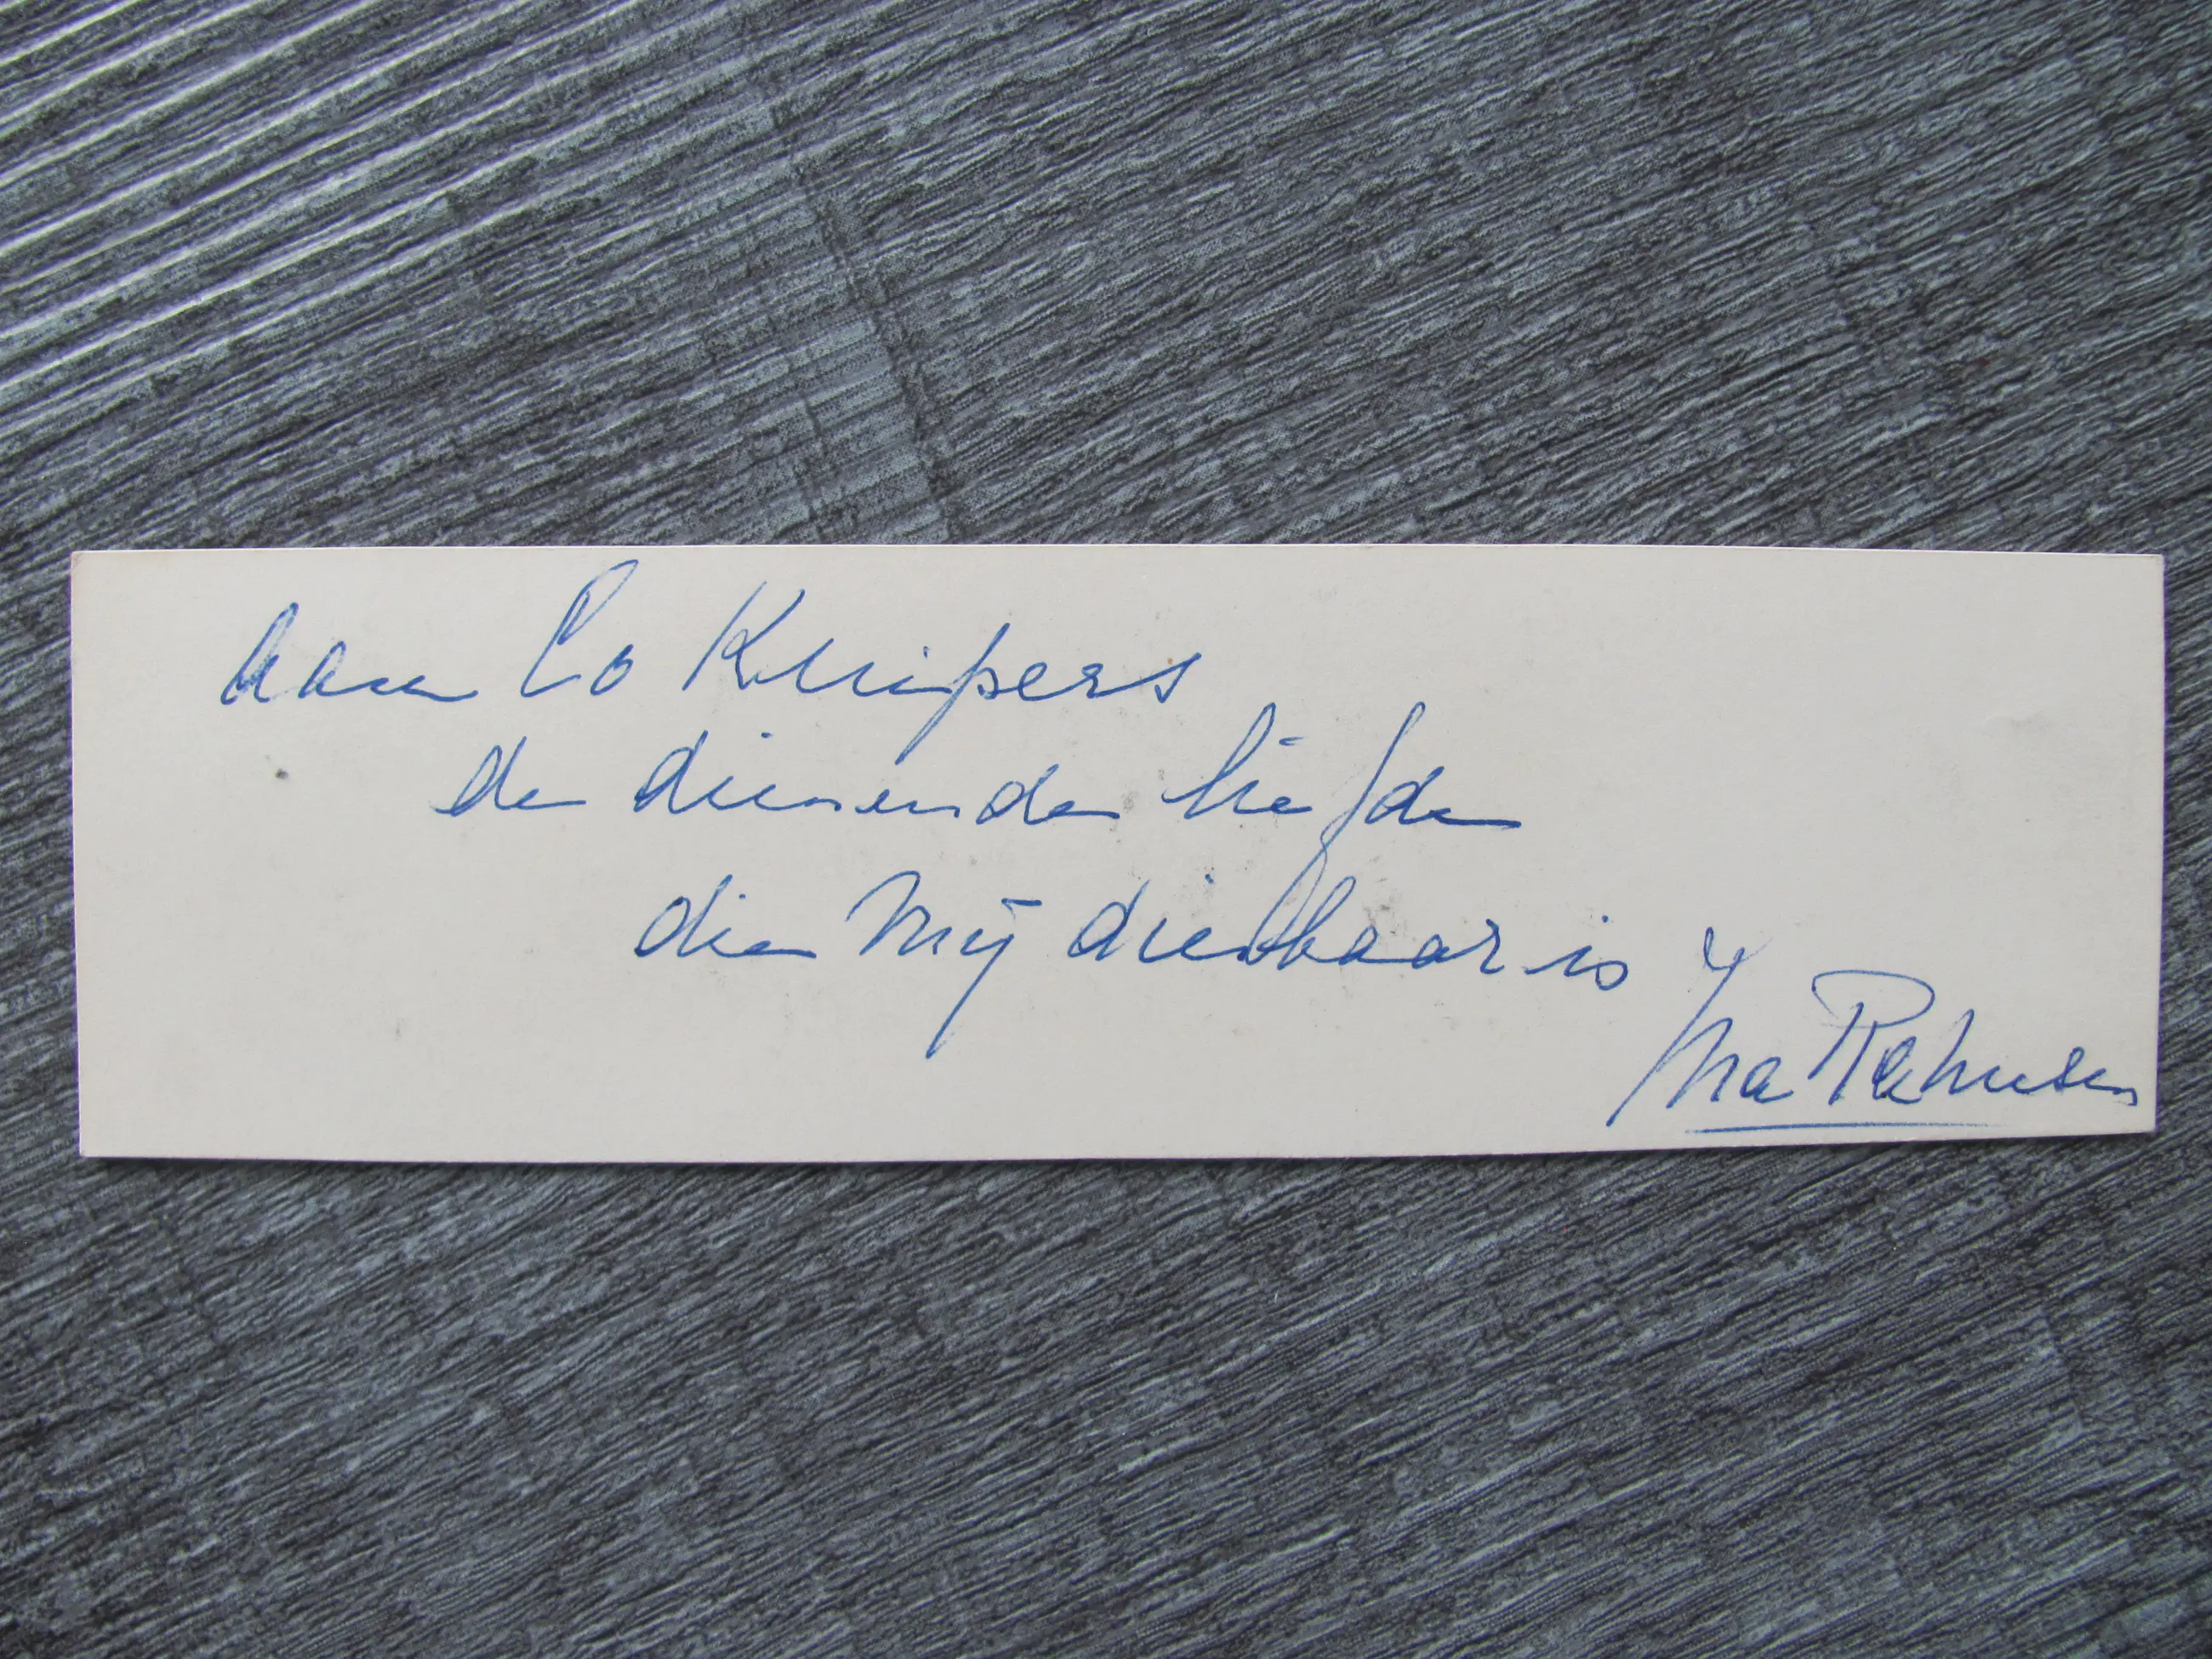 aan Co Kuipers
de dienende liefde
die mij dierbaar is
Ina Rahusen